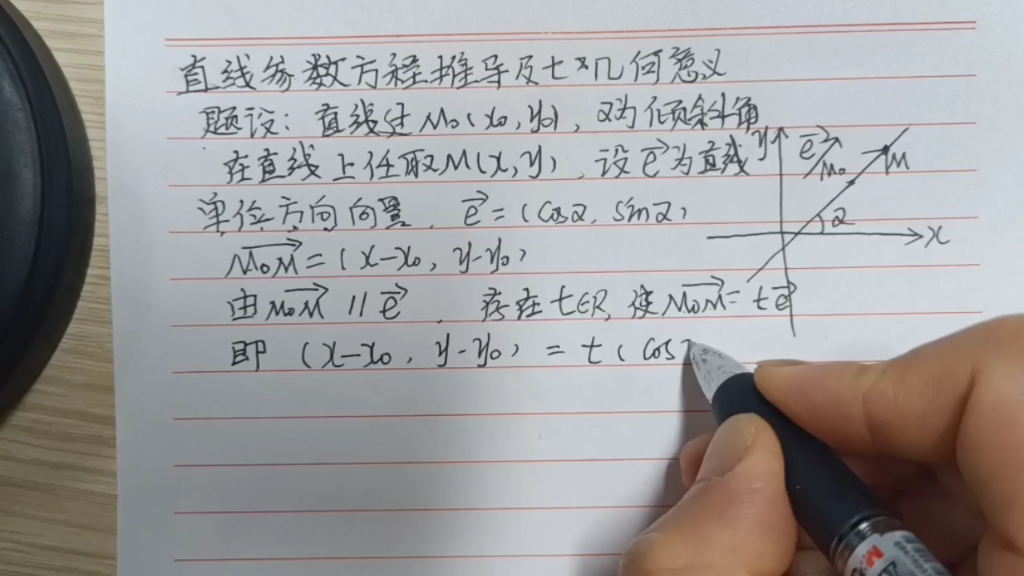 直线参数方程推导及t的几何意义
题设：直线过M₀(x₀,y₀)，α为倾斜角
在直线上任取M(x,y)，设e⃗为直线
单位方向向量，e⃗=(cosα, sinα)
M₀M⃗=(x-x₀, y-y₀)
由M₀M⃗ // e⃗，存在t∈R，使M₀M⃗=te⃗
即 (x-x₀, y-y₀) = t(cos
y
e⃗
M₀
M
α
x